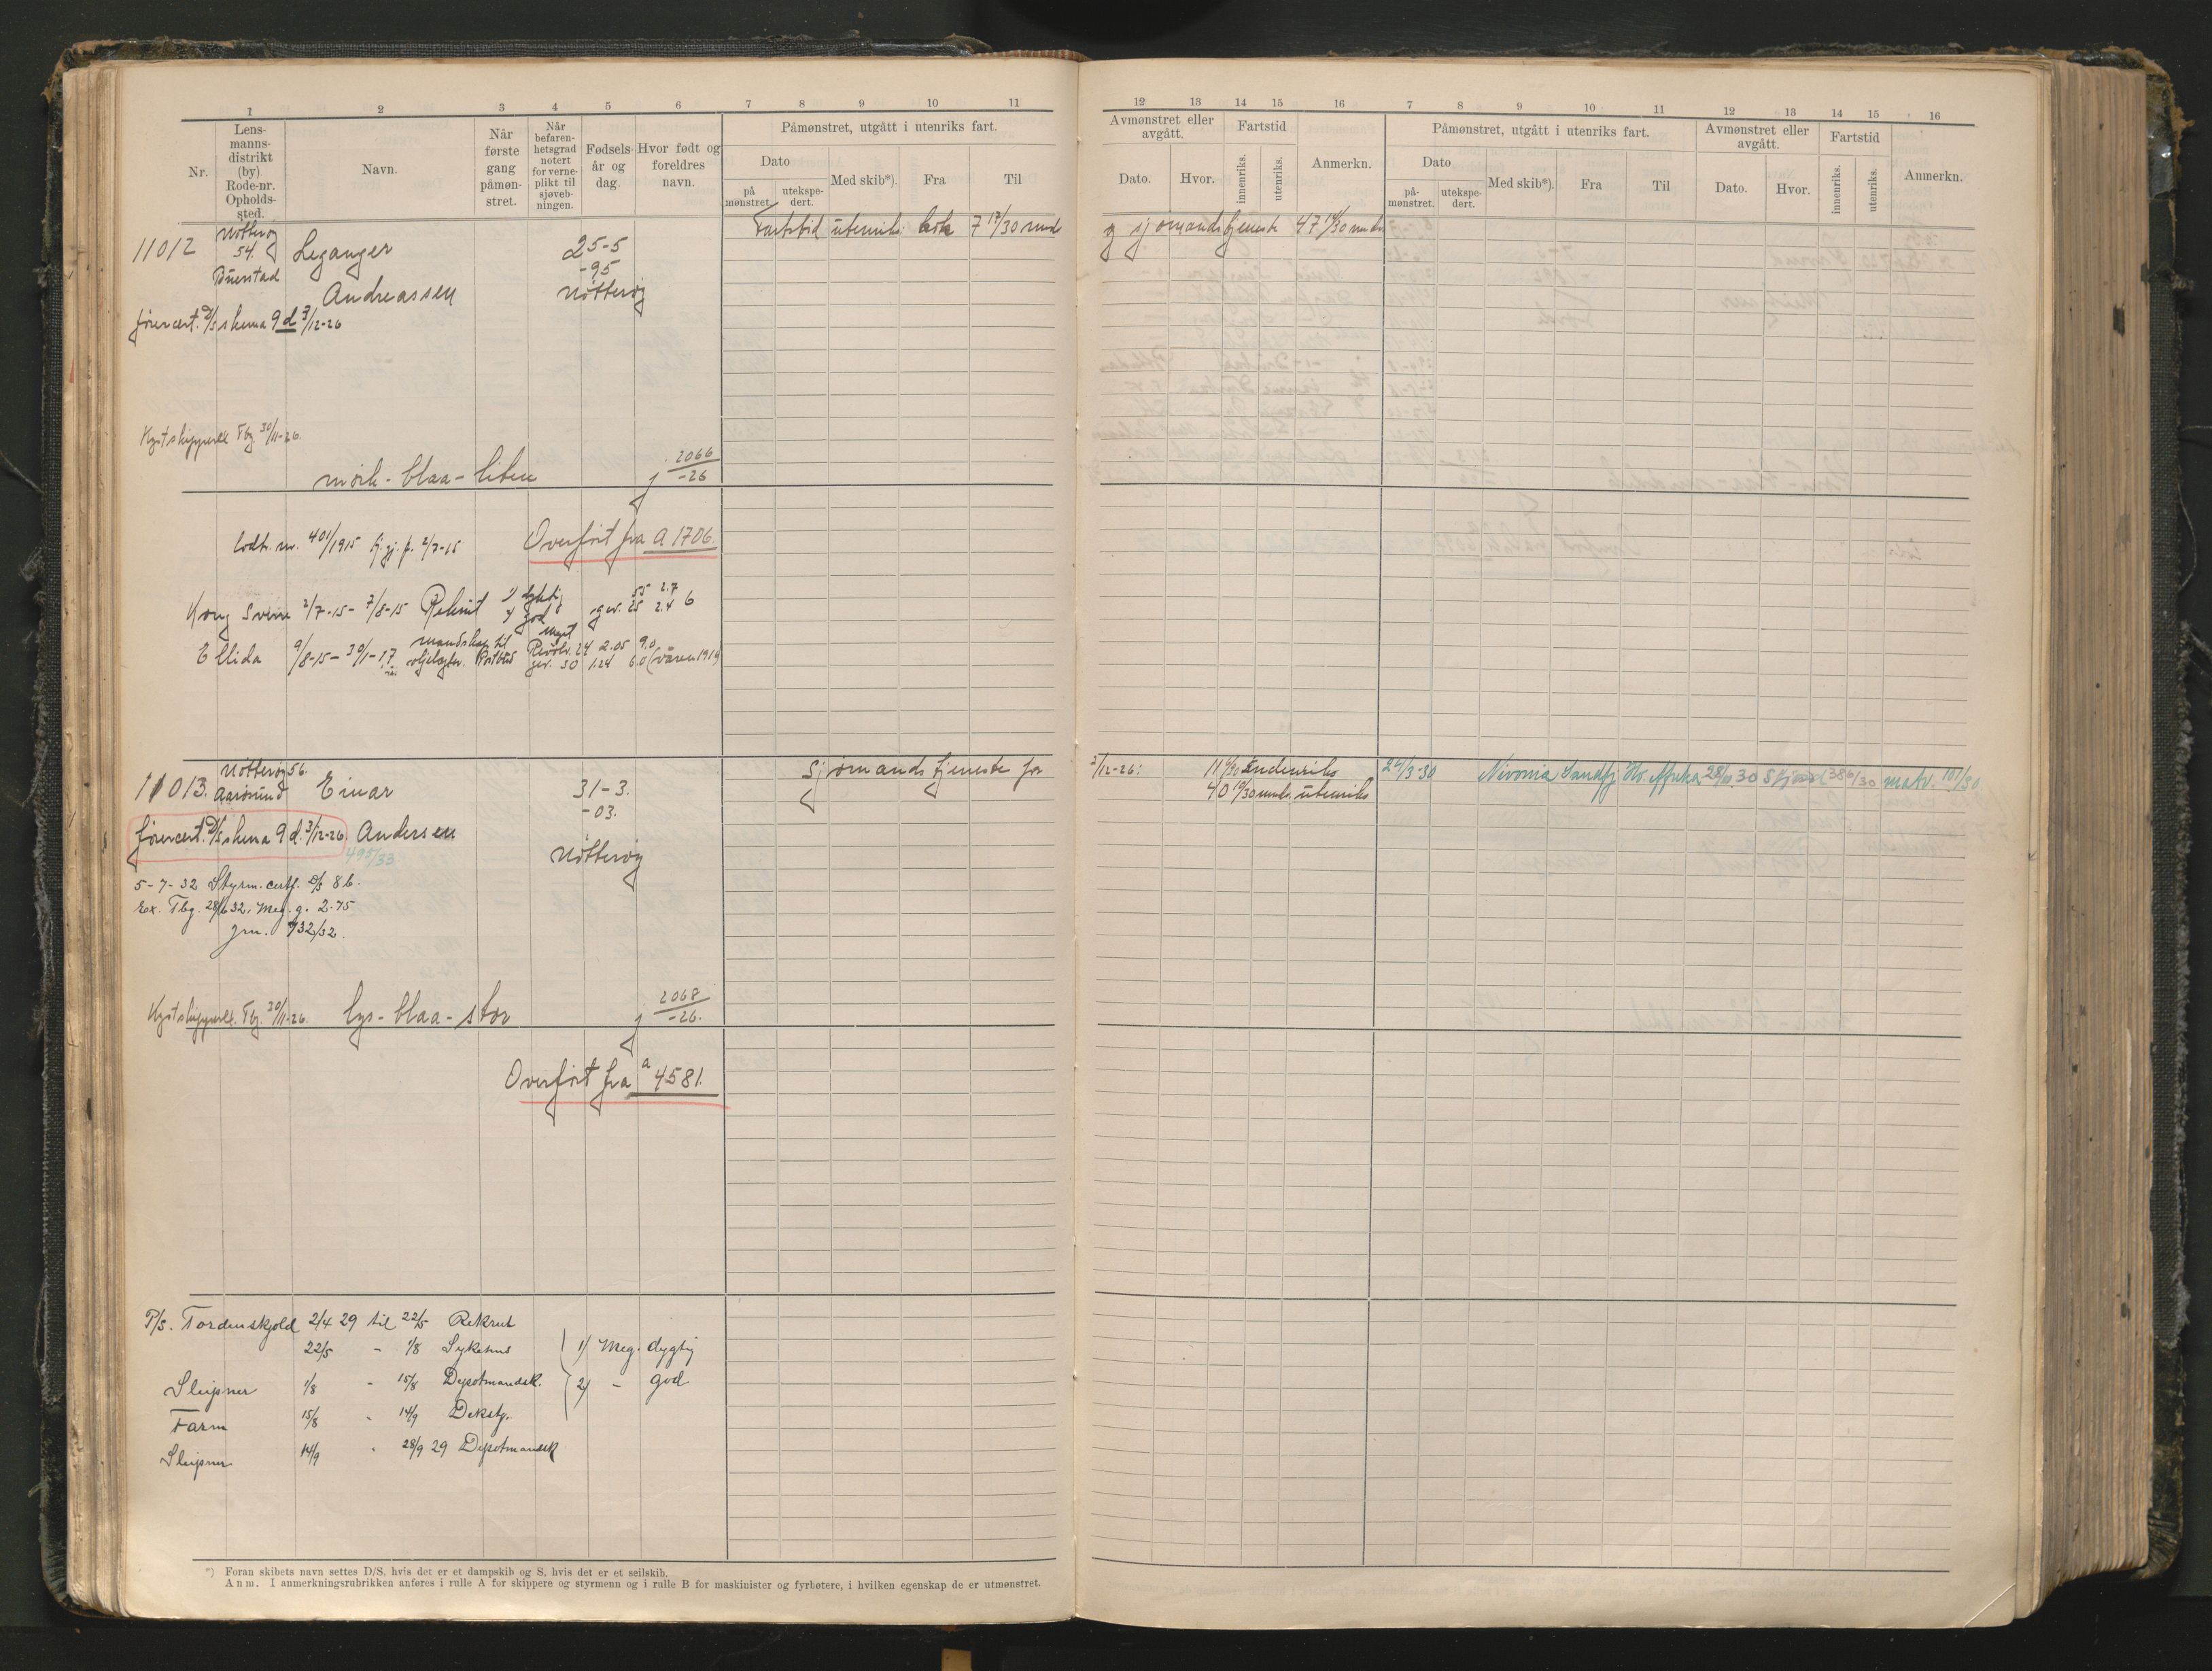 1 2 3 4 5 6 7 8 9 10 11
Nr. Lens-manns-distrikt (by) Rode-nr. Opholds-sted. Navn. Når første gang påmøn-stret. Når befaren-hetsgrad notert for verne-plikt til sjøveb-ningen. Fødsels-år og dag. Hvor født og foreldres navn.
Påmønstret, utgått i utenriks fart.
Dato Med skib*). Fra Til
på mønstret utekspe-dert.
12 13 14 15 16 7 8 9 10 11 12 13 14 15 16
Avmønstret eller avgått. Fartstid Anmerkn. Påmønstret, utgått i utenriks fart. Avmønstret eller avgått. Fartstid Anmerkn.
Dato. Hvor. innenriks. utenriks. Dato Med skib*). Fra Til Dato. Hvor. innenriks. utenriks.
på-mønstret. utekspe-dert.
11012 Nøtterøy 54. Leganger 25-5 -95 Fartstid utenriks 7 12/30 mndr og sjømandstjeneste 47 14/30 mndr
Buerstad Andreassen Nøtterøy
førercert. D/S skema 9d 3/12-26
Kystskipperex Tbg 30/11-26.
mørk-blaa-liten j 2066/-26
lodtr. nr. 401/1915 2/7-15 Overført fra A 1706.
Kong Sverre 2/7-15 - 7/8-15 Rekrut 1) dygtig 2) god gev. 55 2.7 25 2.4 6
Ellida 9/8-15 - 30/1-17 mandskap til Revolv. 24 2.05 9.0
gev. 30 1.24 6.0 (våren 1916)
11013. Nøtterøy 56. Einar 31-3. Sjømandstjeneste før 3/12-26: indenriks 24/3-30 Nivonia Sandfj 28/ 30 Sfjord (386/30 matr. 101/30
Aarøsund -03. 40 19/30 mndr. utenriks
førercert. D/S skema 9d. 3/12-26. Andersen
495/33 Nøtterøy
5-7-32 Styrm. certf. D/S 8 b.
Ex. Tbg. 28/6 32. Meg. g. 2.75
jrn. 732/32.
Kystskipperex. Tbg. 30/11-26. lys-blaa-stor j 2068/-26.
Overført fra a 4581.
P/S. Tordenskjold 2/4 29 til 22/5 Rekrut
22/5 - 1/8 Sykehus 1) Meg. dygtig
Sleipner 1/8 - 15/8 Depotmandsk. 2) - god
Farm 15/8 - 14/9
Sleipner 14/9 - 28/9 29 Depotmandsk
*) Foran skibets navn settes D/S, hvis det er et dampskib og S, hvis det er et seilskib.
Anm. I anmerkningsrubrikken anføres i rulle A for skippere og styrmenn og i rulle B for maskinister og fyrbøtere, i hvilken egenskap de er utmønstret.